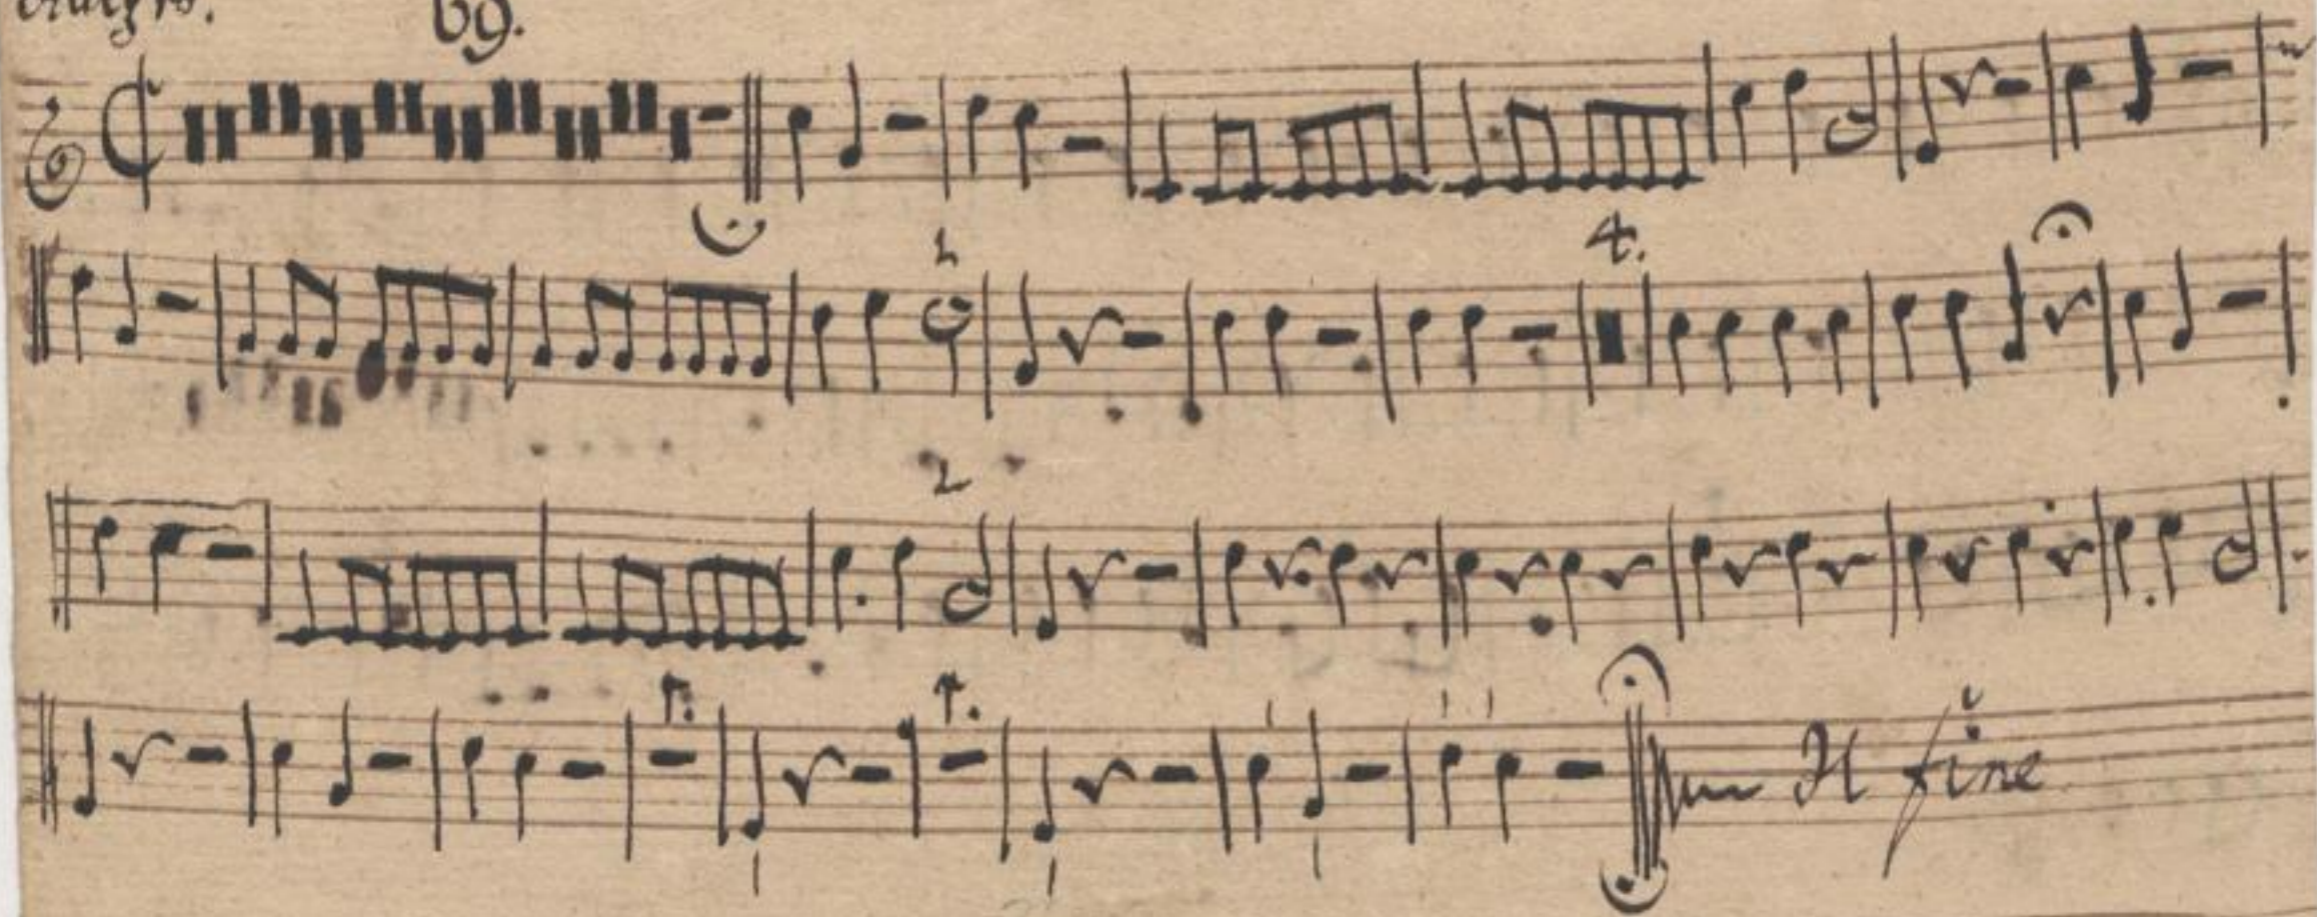 69.
2
4.
2
1.
1.
Il fine